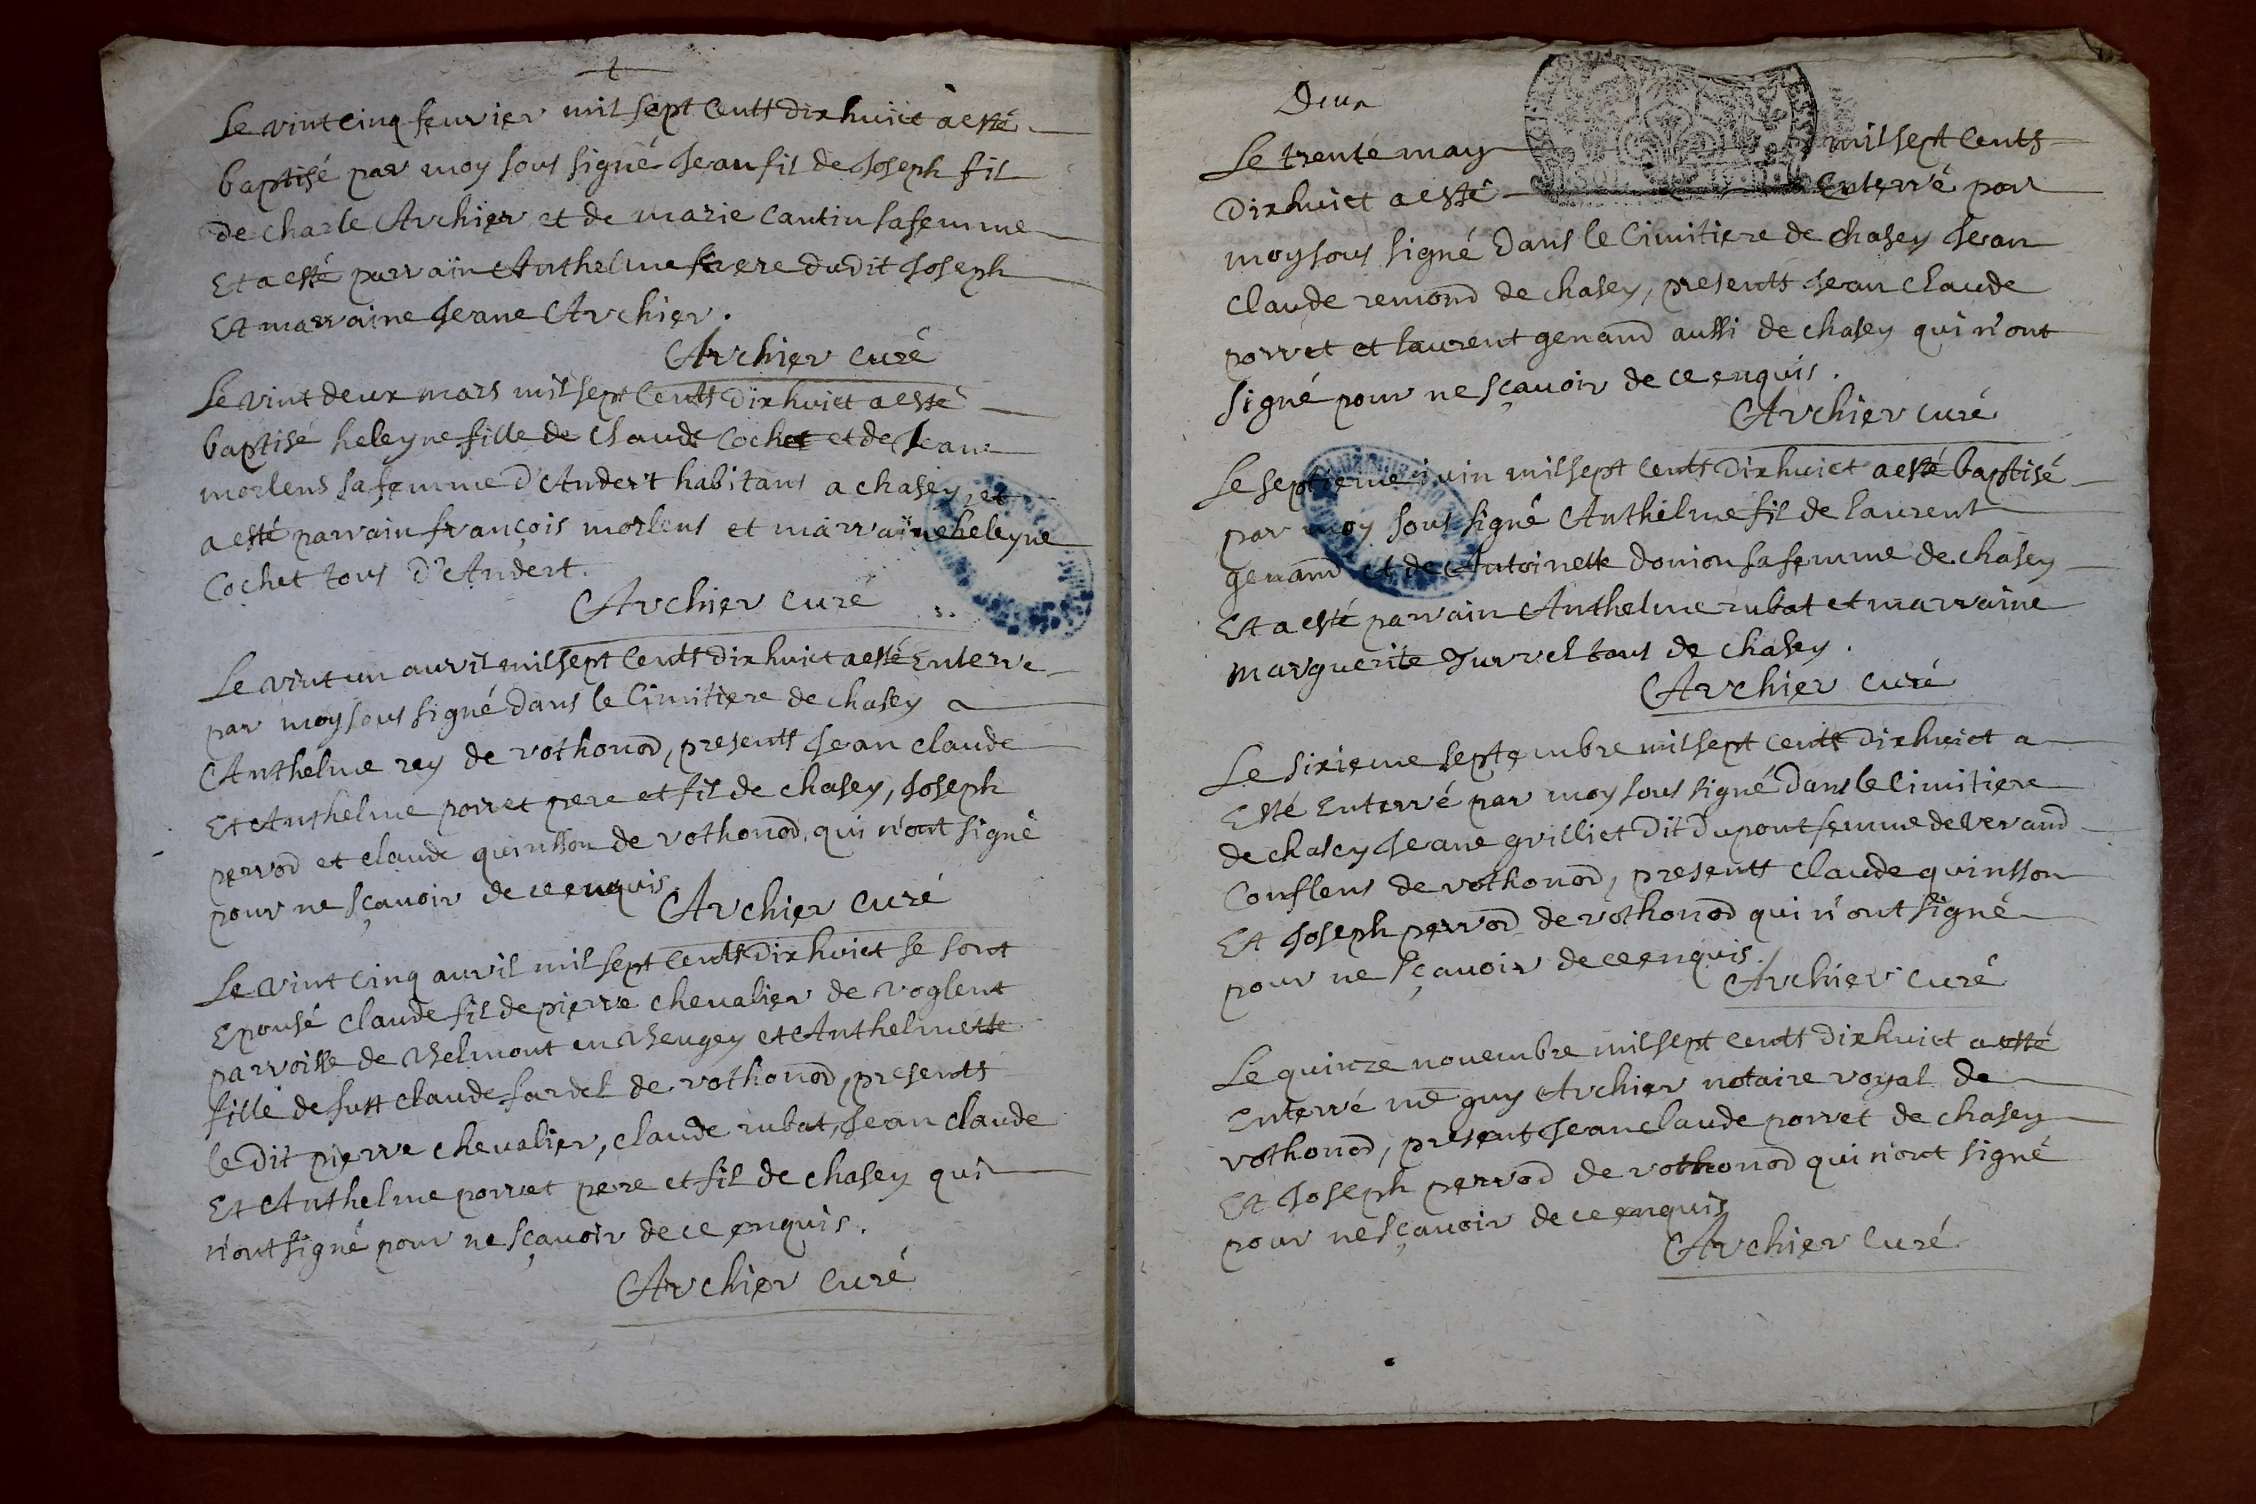 Le vint cinq feuvrier mil sept cents dix huict a esté
baptisé par moy sous signé Jean fil de Joseph fil
de charle Archier et de marie cantin sa femme
Et a esté parrain Anthelme frere dudit Joseph
Et marraine Jeane Archier.
Archier curé
Le vint deux mars mil sept cents dix huict a esté
baptisé heleyne fille de claude cochet et de Jeane
morlens sa femme d'Andert habitans a chasey, et
a esté parrain françois morlens et marraine heleyne
Cochet tous d'Andert.
Archier curé
Le vint un auvril mil sept cents dix huict a esté Enterré
par moy sous signé dans le cimitiere de chasey
Anthelme rey de vothonod, presents Jean claude
Et Anthelme porret pere et fil de chasey, Joseph
perrod et claude quinsson de vothonod, qui n'ont signé
pour ne sçavoir de ce enquis
Archier curé
Le vint cinq auvril mil sept cents dix huict se sont
Epousé claude fil de pierre chevalier de voglent
parroisse de Belmont en Beugey et Anthelmette
fille de futt claude fardel de vothonod, presents
le dit pierre chevalier, claude rubat, Jean claude
Et Anthelme porret pere et fil de chasey qui
n'ont signé pour ne sçavoir de ce enquis.
Archier curé
Deux
Le trente may mil sept cents
dix huict a esté Enterré par
moy sous signé dans le cimitiere de chasey Jean
claude remond de chasey, presents Jean claude
porret et laurent genand aussi de chasey qui n'ont
signé pour ne sçavoir de ce enquis.
Archier curé
Le septieme juin mil sept cents dix huict a esté baptisé
par moy sous signé Anthelme fil de laurent
genand et de Antoinette donion sa femme de chasey
Et a esté parrain Anthelme rubat et marraine
marguerite Jurrel tous de chasey.
Archier curé
Le sixieme septembre mil sept cents dix huict a
Esté Enterré par moy sous signé dans le cimitiere
de chasey Jeane grilliet dit Dupont femme de verand
Conflens de vothonod, presents claude quinsson
Et Joseph perrod de vothonod qui n'ont signé
pour ne sçavoir de ce enquis.
Archier curé
Le quinze novembre mil sept cents dix huict a esté
Enterré me guy Archier notaire royal de
vothonod, present Jean claude porret de chasey
Et Joseph perrod de vothonod qui n'ont signé
pour ne sçavoir de ce enquis
Archier curé